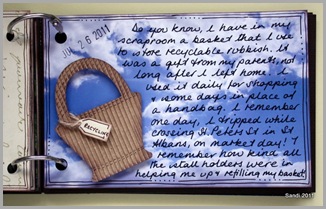 JUN 26 2011
RECYCLING
Do you know, I have in my
scraproom a basket that I use
to store recyclable rubbish. It
was a gift from my parents, not
long after I left home. I
used it daily for shopping
& some days in place of
a handbag. I remember
one day, I tripped while
crossing St. Peters St in St
Albans, on market day! I
remember how kind all
the stall holders were in
helping me up & refilling my basket.
Sandi 2011